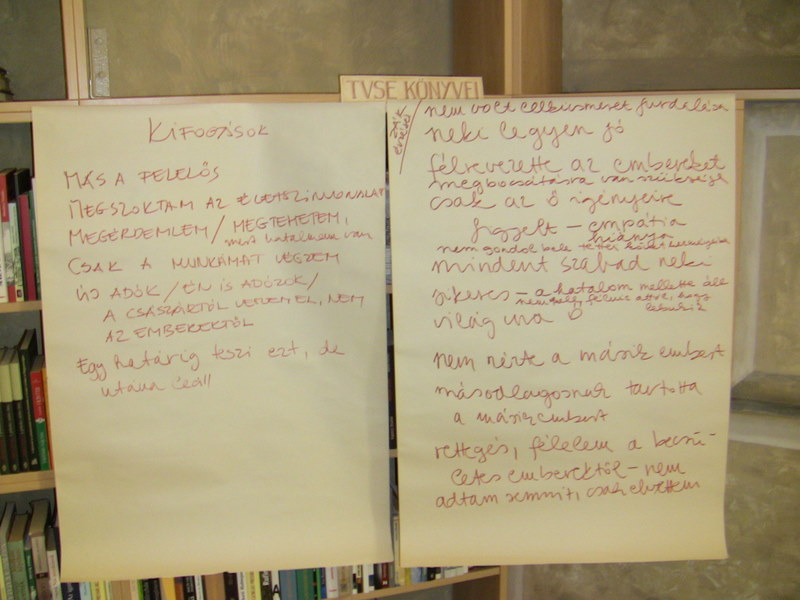 TVSE KÖNYVEI
KIFOGÁSOK
MÁS A FELELŐS
MEGSZOKTAM AZ ÉLETSZÍNVONALAT
MEGÉRDEMLEM / MEGTEHETEM,
mert hatalmam van
CSAK A MUNKÁMAT VÉGZEM
ÚJ ADÓK / ÉN IS ADÓZOK /
A CSÁSZÁRTÓL VESZEM EL, NEM
AZ EMBEREKTŐL
Egy határig teszi ezt, de
utána leáll
nem volt lelkiismeret furdalása
neki legyen jó
félrevezette az embereket
megbocsátásra van szüksége
csak az ő igényeire
figyelt – empátia
hiánya
nem gondol bele tettei
mindent szabad neki
sikeres – a hatalom mellette áll
nem, hogy
lebukik
világ ura
nem nézte a másik embert
másodlagosnak tartotta
a másik embert
rettegés, félelem a becsü-
letes emberektől – nem
adtam semmit, csak elvettem